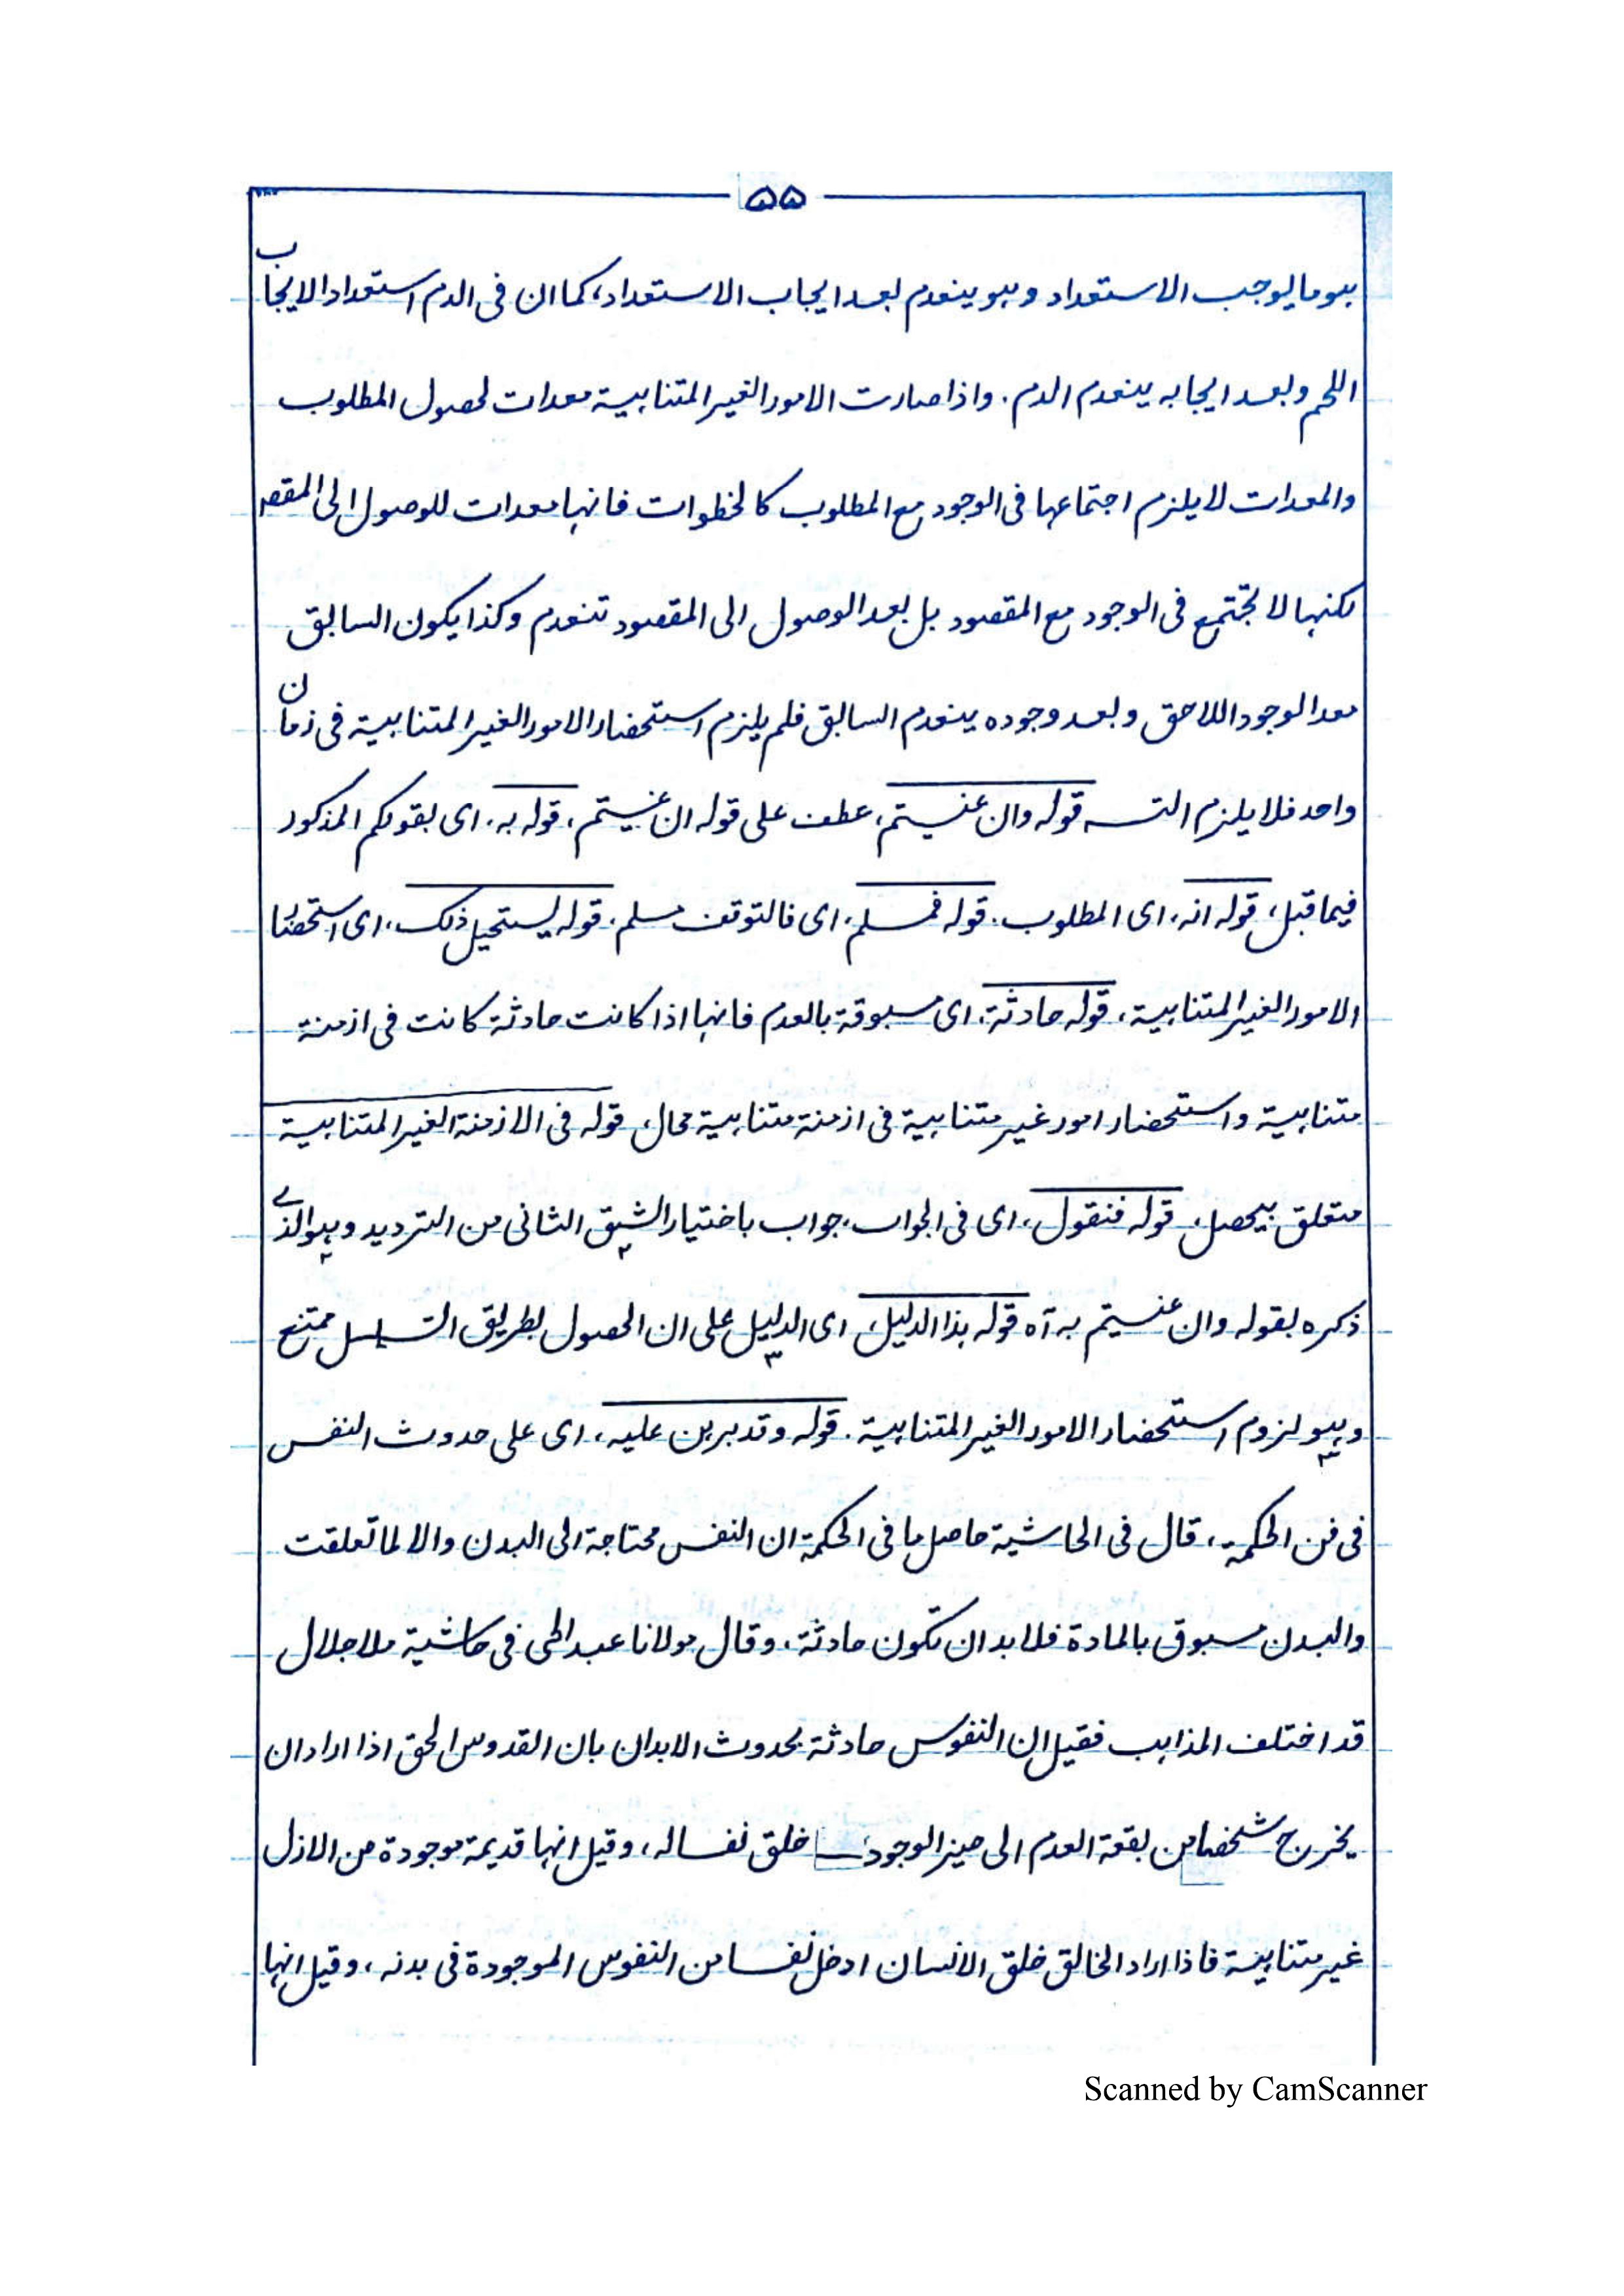 ۵۵
ہو ما یوجب الاستعداد وہو ینعدم بعد ایجاب الاستعداد، کما ان فی الدم استعداد الایجاب
اللحم وبعد ایجابہ ینعدم الدم. واذا صارت الامور الغیر المتناہیۃ معدات لحصول المطلوب
والمعدات لا یلزم اجتماعہا فی الوجود مع المطلوب کالخطوات فانہا معدات للوصول الی المقصد
لکنہا لا تجتمع فی الوجود مع المقصود بل بعد الوصول الی المقصود تنعدم وکذا یکون السابق
معدا لوجود اللاحق وبعد وجودہ ینعدم السابق فلم یلزم استحضار الامور الغیر المتناہیۃ فی زمان
واحد فلا یلزم التسـ قولہ وان عنیتم، عطف علی قولہ ان عنیتم، قولہ بہ، ای بقولکم المذکور
فیما قبل، قولہ انہ، ای المطلوب. قولہ فمسلم، ای فالتوقف مسلم، قولہ یستحیل ذلک، ای استحضار
الامور الغیر المتناہیۃ، قولہ حادثۃ، ای مسبوقۃ بالعدم فانہا اذا کانت حادثۃ کانت فی ازمنۃ
متناہیۃ واستحضار امور غیر متناہیۃ فی ازمنۃ متناہیۃ محال، قولہ فی الازمنۃ الغیر المتناہیۃ
متعلق بیحصل، قولہ فنقول، ای فی الجواب، جواب باختیار الشق الثانی من التردید وہو الذے
ذکرہ بقولہ وان عنیتم بہ آہ قولہ ہذا الدلیل، ای الدلیل علی ان الحصول بطریق التسلسل ممتنع
وہو لزوم استحضار الامور الغیر المتناہیۃ. قولہ وقد برہن علیہ، ای علی حدوث النفس
فی فن الحکمۃ، قال فی الحاشیۃ حاصل ما فی الحکمۃ ان النفس محتاجۃ الی البدن والا لما تعلقت
والبدن مسبوق بالمادۃ فلا بد ان تکون حادثۃ، وقال مولانا عبد الحی فی حاشیۃ ملا جلال
قد اختلف المذاہب فقیل ان النفوس حادثۃ بحدوث الابدان بان القدوس الحق اذا اراد ان
یخرج شخصا من بقعۃ العدم الی حیز الوجود خلق نفسا لہ، وقیل انہا قدیمۃ موجودۃ من الازل
غیر متناہیۃ فاذا اراد الخالق خلق الانسان ادخل نفسا من النفوس الموجودۃ فی بدنہ، وقیل انہا
Scanned by CamScanner